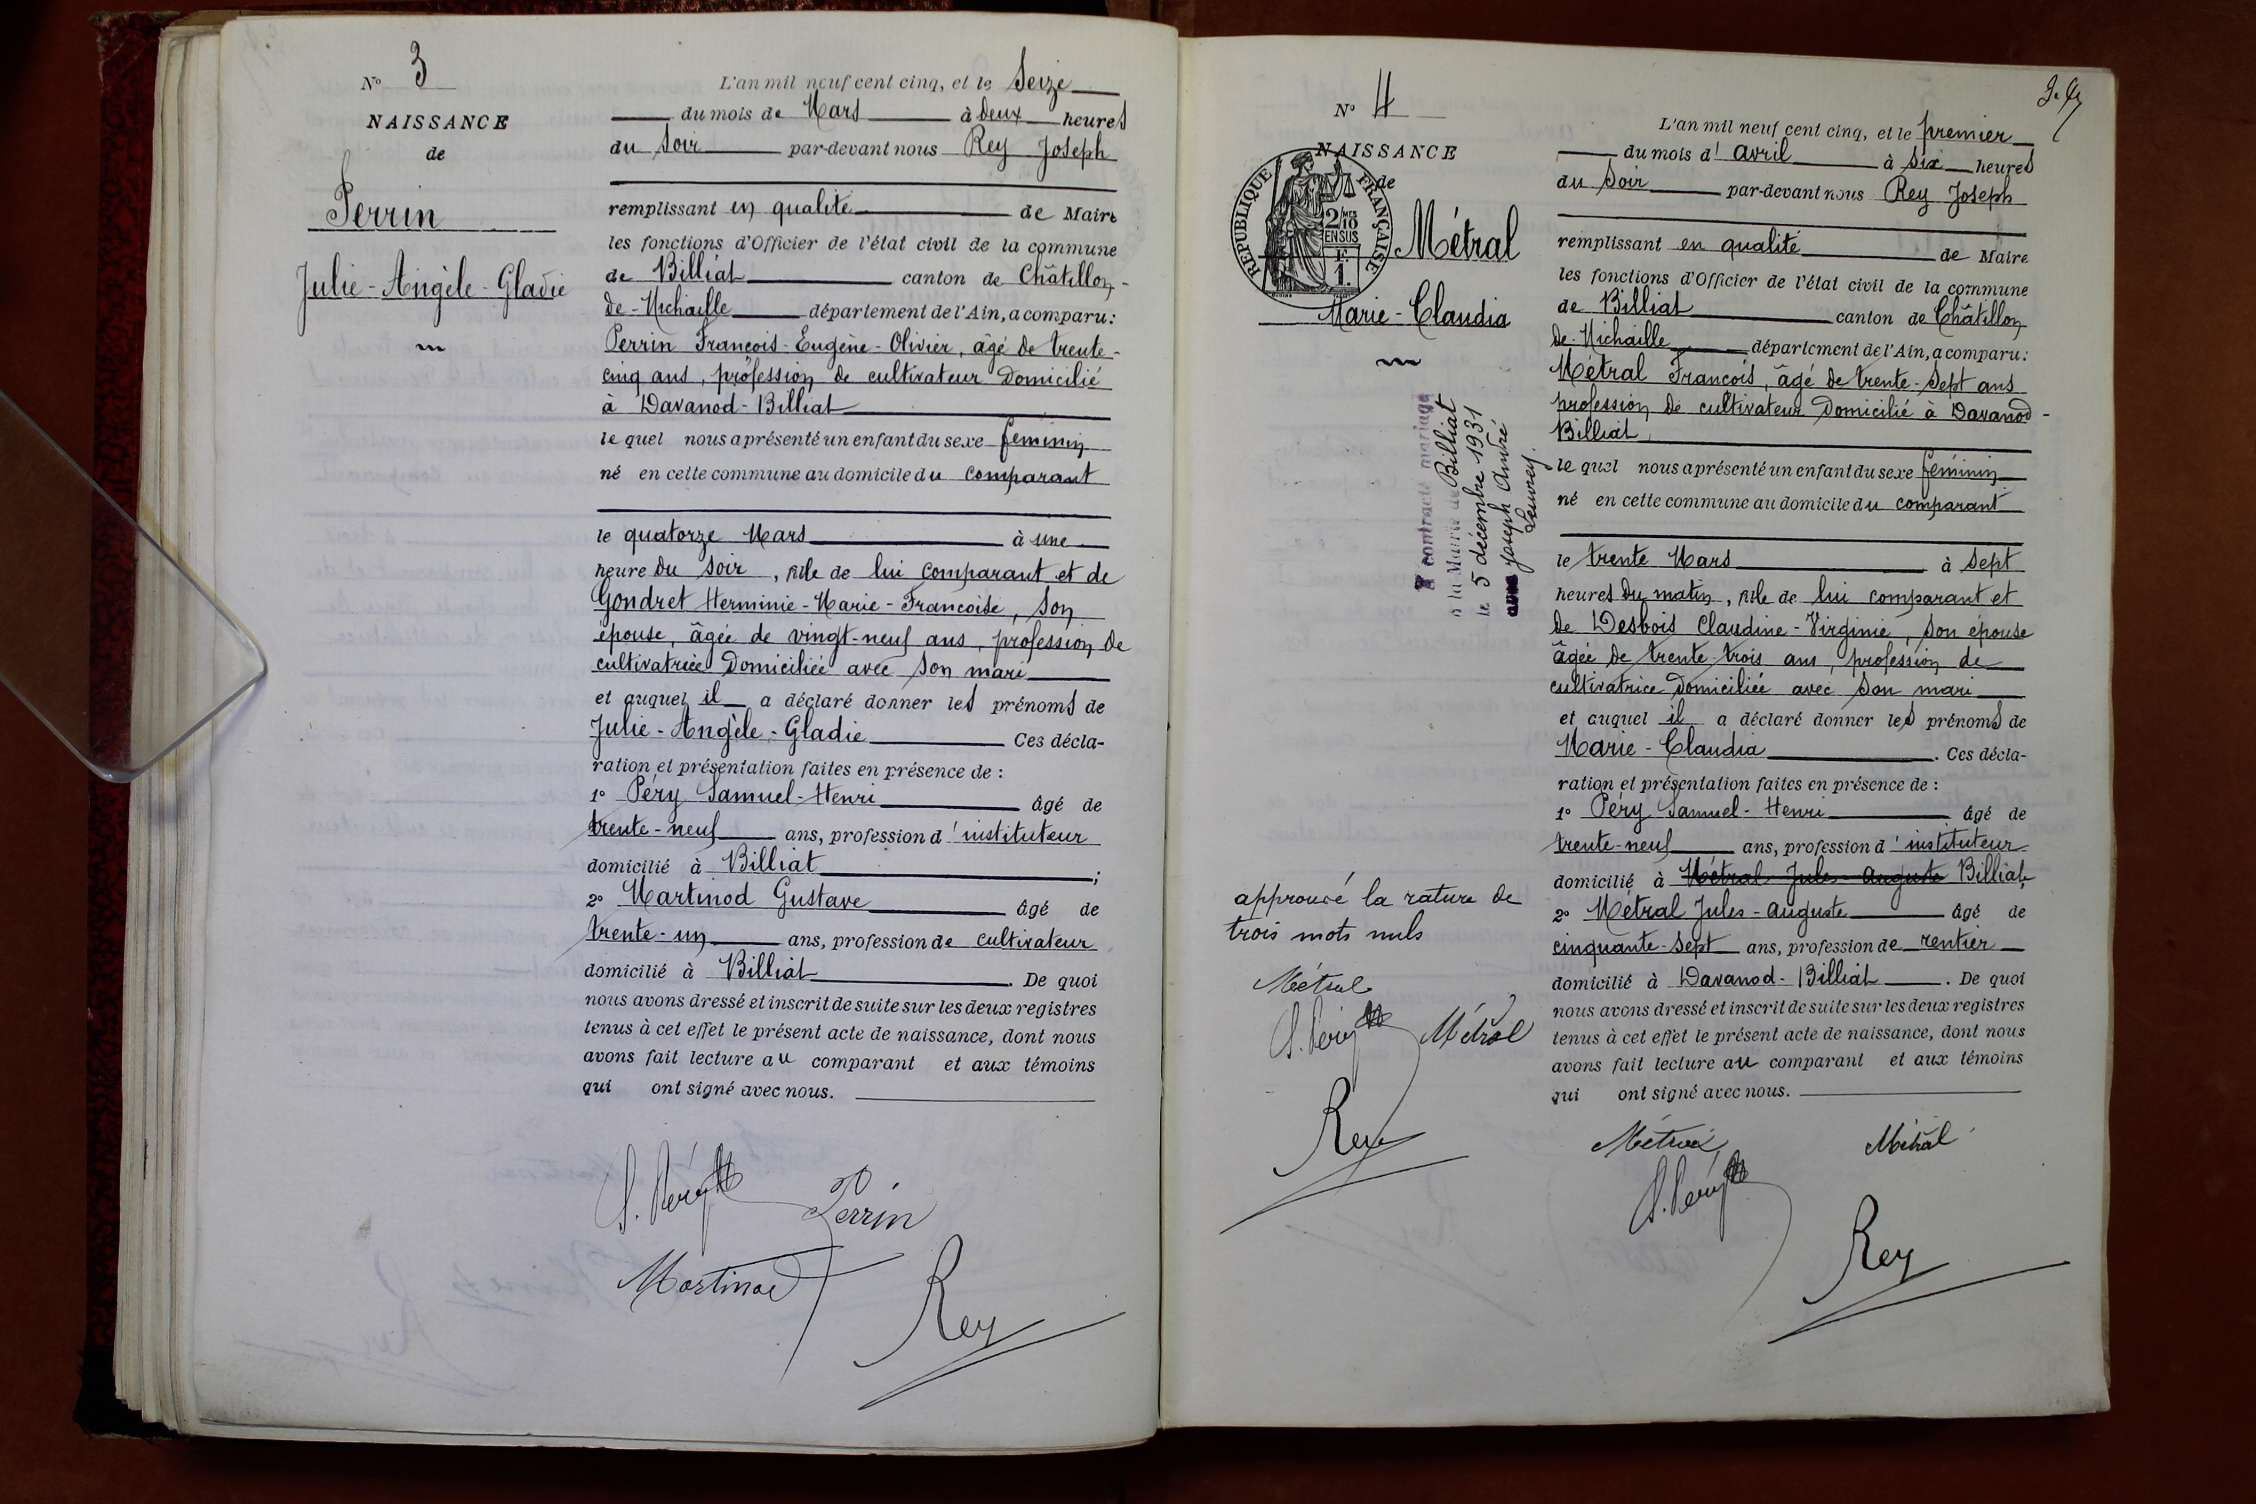 N° 3
NAISSANCE
de
Perrin
Julie-Angèle-Gladie
L'an mil neuf cent cinq, et le seize
du mois de Mars à deux heures
du soir par-devant nous Rey Joseph
remplissant en qualité de Maire
les fonctions d'Officier de l'état civil de la commune
de Billiat canton de Châtillon-
de-Michaille département de l'Ain, a comparu:
Perrin François-Eugène-Olivier, âgé de trente-
cinq ans, profession de cultivateur domicilié
à Davanod-Billiat
le quel nous a présenté un enfant du sexe féminin
né en cette commune au domicile du comparant
le quatorze Mars à une
heure du soir, fille de lui comparant et de
Gondret Herminie-Marie-Françoise, son
épouse, âgée de vingt-neuf ans, profession de
cultivatrice domiciliée avec son mari
et auquel il a déclaré donner les prénoms de
Julie-Angèle-Gladie Ces décla-
ration et présentation faites en présence de:
1° Péry Samuel-Henri âgé de
trente-neuf ans, profession d'instituteur
domicilié à Billiat;
2° Martinod Gustave âgé de
trente-un ans, profession de cultivateur
domicilié à Billiat. De quoi
nous avons dressé et inscrit de suite sur les deux registres
tenus à cet effet le présent acte de naissance, dont nous
avons fait lecture au comparant et aux témoins
qui ont signé avec nous.
S. Péry Perrin
Martinod
Rey
N° 4
NAISSANCE
de
REPUBLIQUE FRANÇAISE
2/10 MES
EN SUS
F.
1.
Métral
Marie-Claudia
A contracté mariage
à la Mairie de Billiat
le 5 décembre 1931
avec Joseph André
approuvé la rature de
trois mots nuls
Métral
S. Péry Métral
Rey
L'an mil neuf cent cinq, et le premier
du mois d'avril à six heures
du soir par-devant nous Rey Joseph
remplissant en qualité de Maire
les fonctions d'Officier de l'état civil de la commune
de Billiat canton de Châtillon
de-Michaille département de l'Ain, a comparu:
Métral François, âgé de trente-sept ans
profession de cultivateur domicilié à Davanod-
Billiat
le quel nous a présenté un enfant du sexe féminin
né en cette commune au domicile du comparant
le trente Mars à sept
heures du matin, fille de lui comparant et
de Desbois Claudine-Virginie, son épouse
âgée de trente trois ans, profession de
cultivatrice domiciliée avec son mari
et auquel il a déclaré donner les prénoms de
Marie-Claudia. Ces décla-
ration et présentation faites en présence de:
1° Péry Samuel-Henri âgé de
trente-neuf ans, profession d'instituteur
domicilié à Métral Jules-Auguste Billiat,
2° Métral Jules-Auguste âgé de
cinquante-sept ans, profession de rentier
domicilié à Davanod-Billiat. De quoi
nous avons dressé et inscrit de suite sur les deux registres
tenus à cet effet le présent acte de naissance, dont nous
avons fait lecture au comparant et aux témoins
qui ont signé avec nous.
Métral Métral
S. Péry
Rey